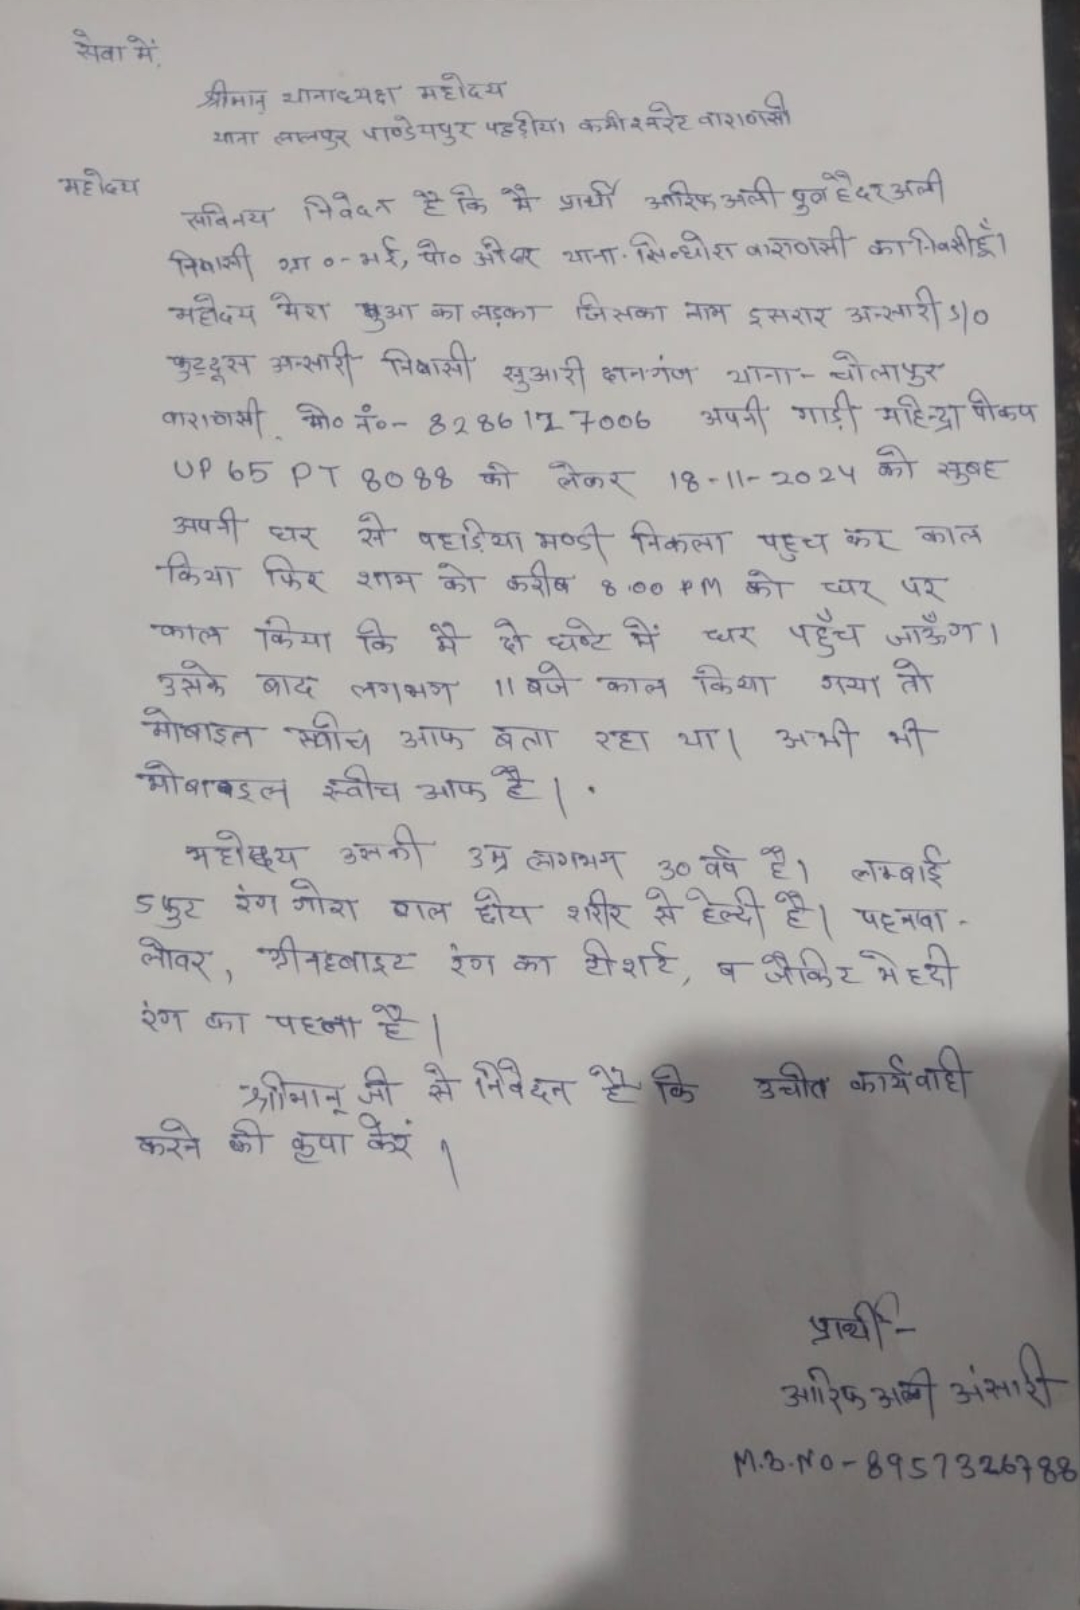 सेवा में,
श्रीमान् थानाध्यक्ष महोदय
थाना लालपुर पाण्डेयपुर पहड़ीया कमीश्नरेट वाराणसी
महोदय
सविनय निवेदन है कि मै प्रार्थी आरिफ अली पुत्र हैदर अली
निवासी ग्रा०-भई, पो० थाना-सिन्धोरा वाराणसी का निवासी हूँ।
महोदय मेरा बुआ का लड़का जिसका नाम इसरार अन्सारी S/O
कुद्दूस अन्सारी निवासी सुआरी दानगंज थाना- चोलापुर
वाराणसी मो० नं०- 8286127006 अपनी गाड़ी महिन्द्रा पीकप
UP 65 PT 8088 को लेकर 18-11-2024 को सुबह
अपनी घर से पहाड़िया मण्डी निकला पहुच कर काल
किया फिर शाम को करीब 8.00 PM को घर पर
काल किया कि मै दो घण्टे में घर पहुँच जाऊँगा।
उसके बाद लगभग 11 बजे काल किया गया तो
मोबाइल स्वीच आफ बता रहा था। अभी भी
मोबाइल स्वीच आफ है।
महोदय उसकी उम्र लगभग 30 वर्ष है। लम्बाई
5 फुट रंग गोरा बाल छोटा शरीर से हेल्दी है। पहनावा -
लोवर, ग्रीनह्वाइट रंग का टीशर्ट, व जैकिट मेहदी
रंग का पहना है।
श्रीमान् जी से निवेदन है कि उचीत कार्यवाही
करने की कृपा करें।
प्रार्थी -
आरिफ अली अंसारी
M.B.NO - 8957326788